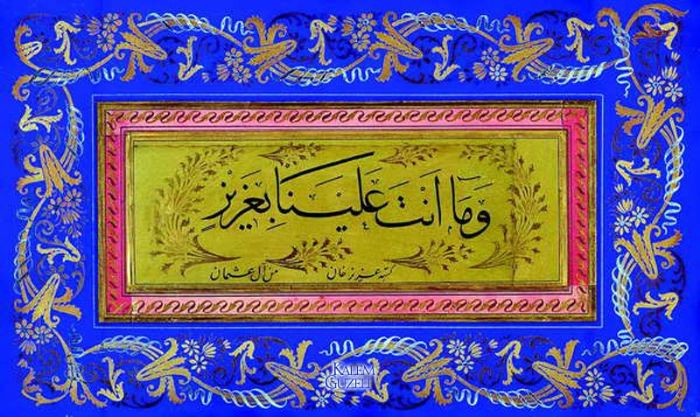 وَمَا اَنْتَ عَلَيْنَا بِعَزِيزٍ
كتبه عزيز خان من آل عثمان
KALEM
GÜZELİ